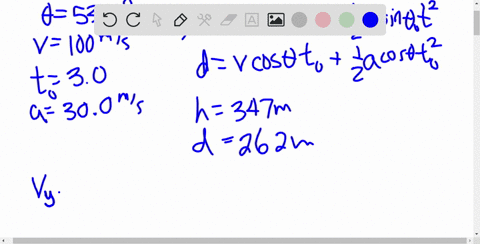 θ = 53
v = 100 m/s
t₀ = 3.0
a = 30.0 m/s
sinθt²
d = v cosθ t₀ + ½ a cosθ t₀²
h = 347m
d = 262m
Vy